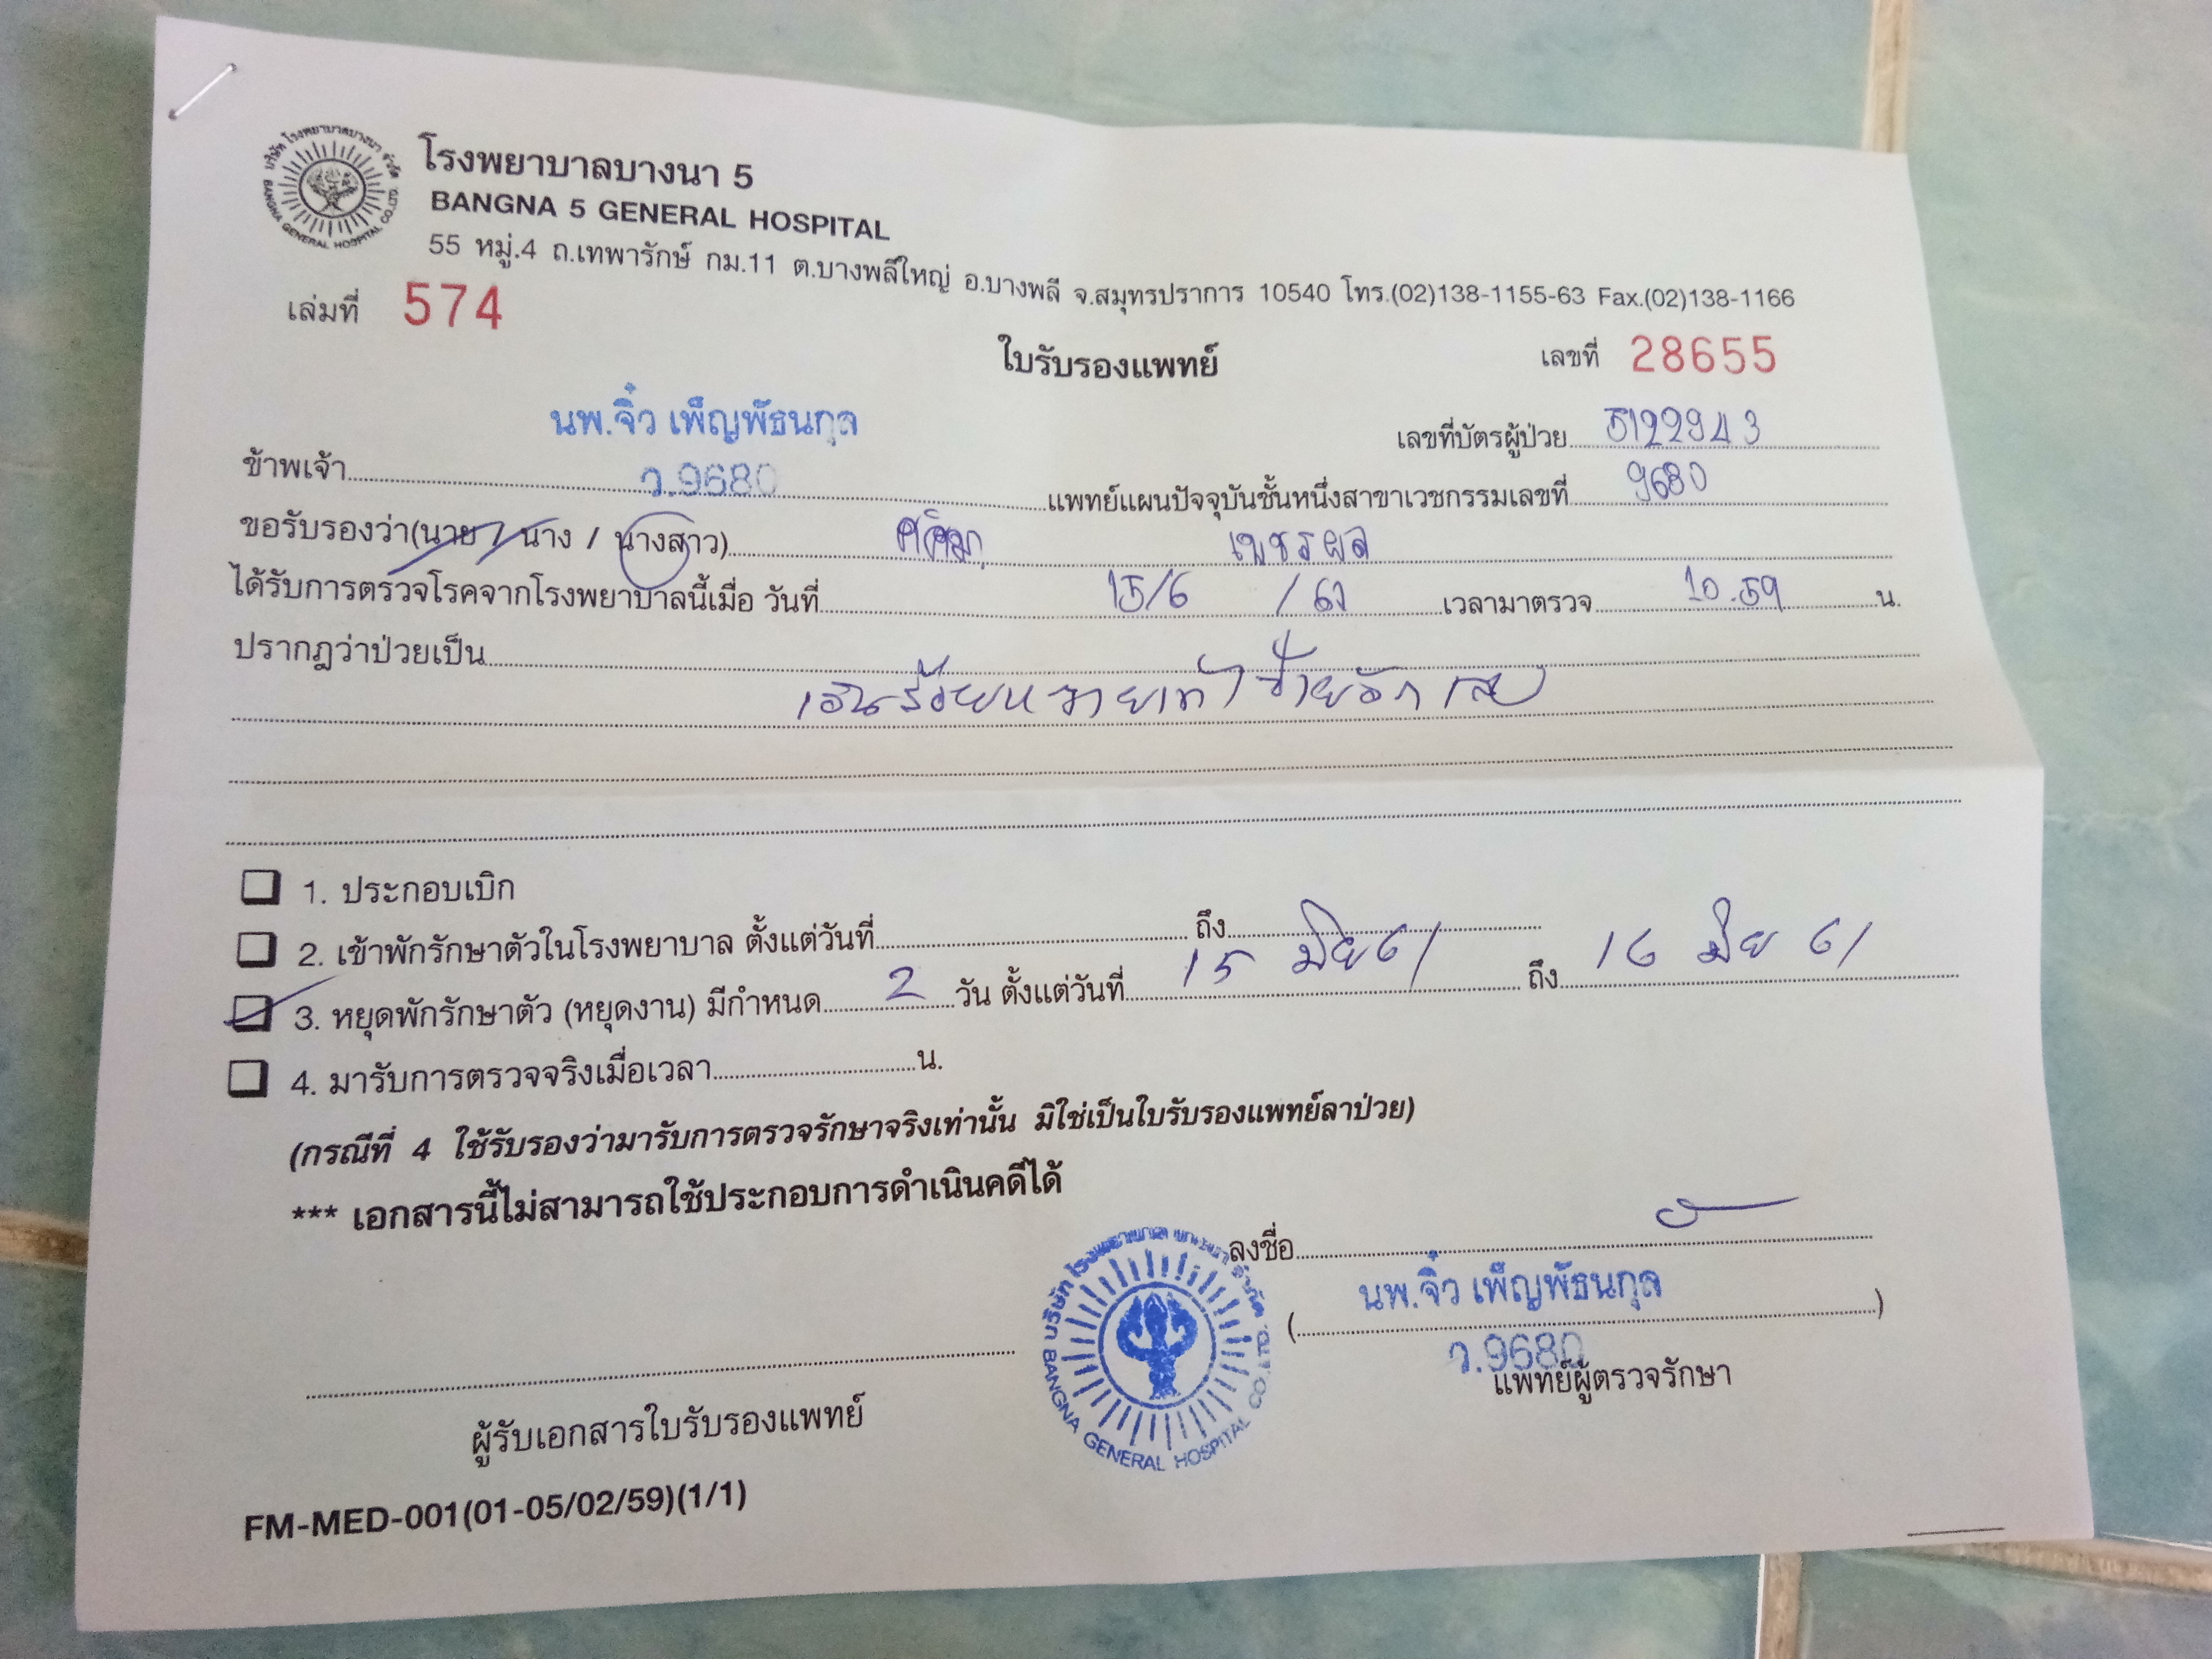 บริษัท โรงพยาบาลบางนา จำกัด
BANGNA GENERAL HOSPITAL CO.,LTD.
โรงพยาบาลบางนา 5
BANGNA 5 GENERAL HOSPITAL
55 หมู่.4 ถ.เทพารักษ์ กม.11 ต.บางพลีใหญ่ อ.บางพลี จ.สมุทรปราการ 10540 โทร.(02)138-1155-63 Fax.(02)138-1166
เล่มที่ 574
ใบรับรองแพทย์
เลขที่ 28655
นพ.จิ๋ว เพ็ญพัธนกุล
เลขที่บัตรผู้ป่วย 5122943
ข้าพเจ้า ว.9680 แพทย์แผนปัจจุบันชั้นหนึ่งสาขาเวชกรรมเลขที่ 9680
ขอรับรองว่า(นาย / นาง / นางสาว) เพชรผล
ได้รับการตรวจโรคจากโรงพยาบาลนี้เมื่อ วันที่ 15/6 /61 เวลามาตรวจ 10.59 น.
ปรากฏว่าป่วยเป็น
เอ็นร้อยหวายเท้าซ้ายอักเสบ
1. ประกอบเบิก
2. เข้าพักรักษาตัวในโรงพยาบาล ตั้งแต่วันที่ ถึง
3. หยุดพักรักษาตัว (หยุดงาน) มีกำหนด 2 วัน ตั้งแต่วันที่ 15 มิย 61 ถึง 16 มิย 61
4. มารับการตรวจจริงเมื่อเวลา น.
(กรณีที่ 4 ใช้รับรองว่ามารับการตรวจรักษาจริงเท่านั้น มิใช่เป็นใบรับรองแพทย์ลาป่วย)
*** เอกสารนี้ไม่สามารถใช้ประกอบการดำเนินคดีได้
ลงชื่อ
(นพ.จิ๋ว เพ็ญพัธนกุล)
ว.9680
แพทย์ผู้ตรวจรักษา
บริษัท โรงพยาบาล บางนา จำกัด
BANGNA GENERAL HOSPITAL CO.,LTD.
ผู้รับเอกสารใบรับรองแพทย์
FM-MED-001(01-05/02/59)(1/1)